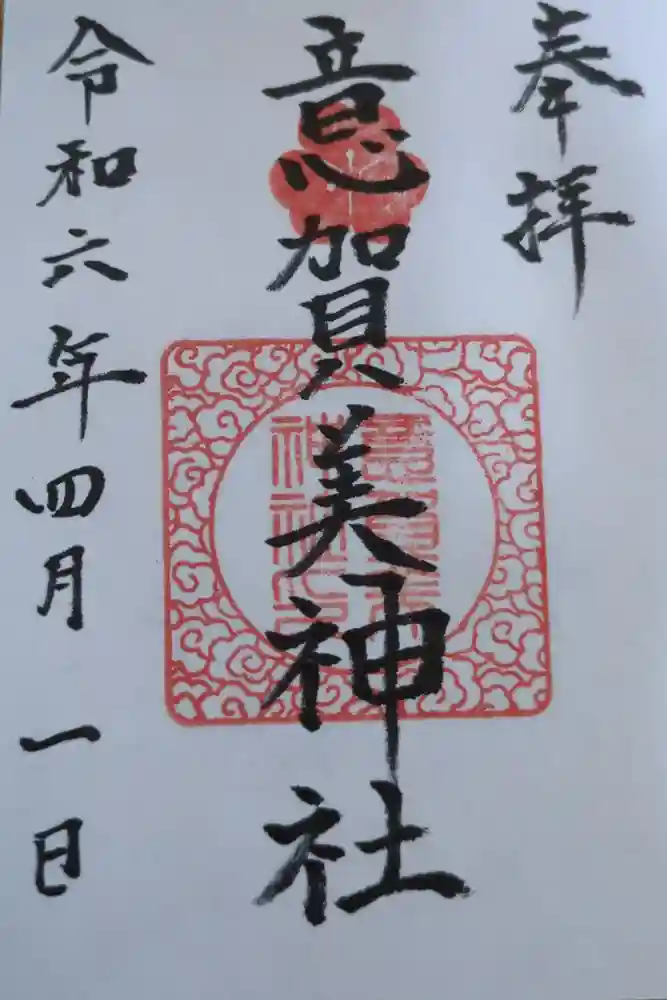 奉拝
意賀美神社
令和六年四月一日